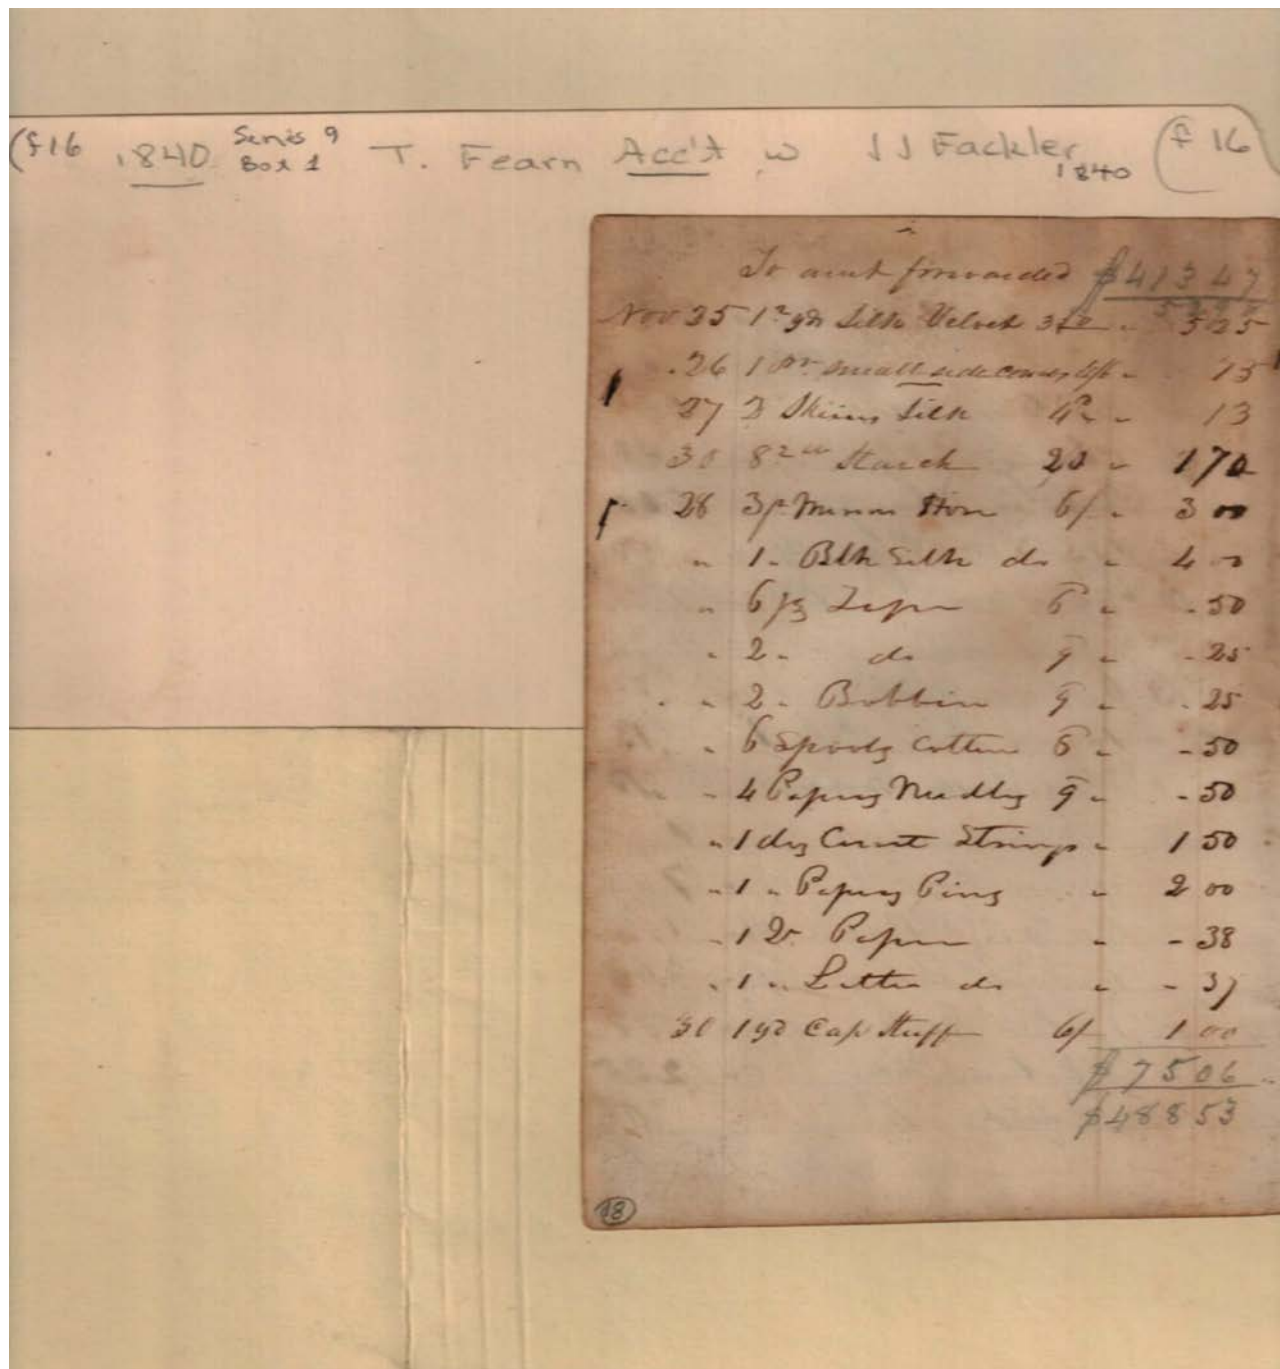 (f16 1840 Series 9 Box 1 T. Fearn Acc't w J J Fackler 1840 (f 16
To amt forwarded $413 47
Nov 25 1 yd Silk Velvet 5 25
" 26 1 pr small side combs
27 3 Skeins Silk 13
30 8 Starch 20 " 1 70
28 3 pr Hose 6/ " 3 00
" 1 " Blk Silk do " 4 00
" 6 ps Tape 6 " - 50
" 2 " do 9 " - 25
" 2 " Bobbin 9 " - 25
" 6 Spools Cotton 6 " - 50
" 4 Papers Needles 9 " - 50
" 1 doz Corset Strings " 1 50
" 1 " Papers Pins " 2 00
" 1 Qr Paper " - 38
" 1 " Letter do " - 37
30 1 yd Cap Stuff 6/ 1 00
$75 06
$488 53
18